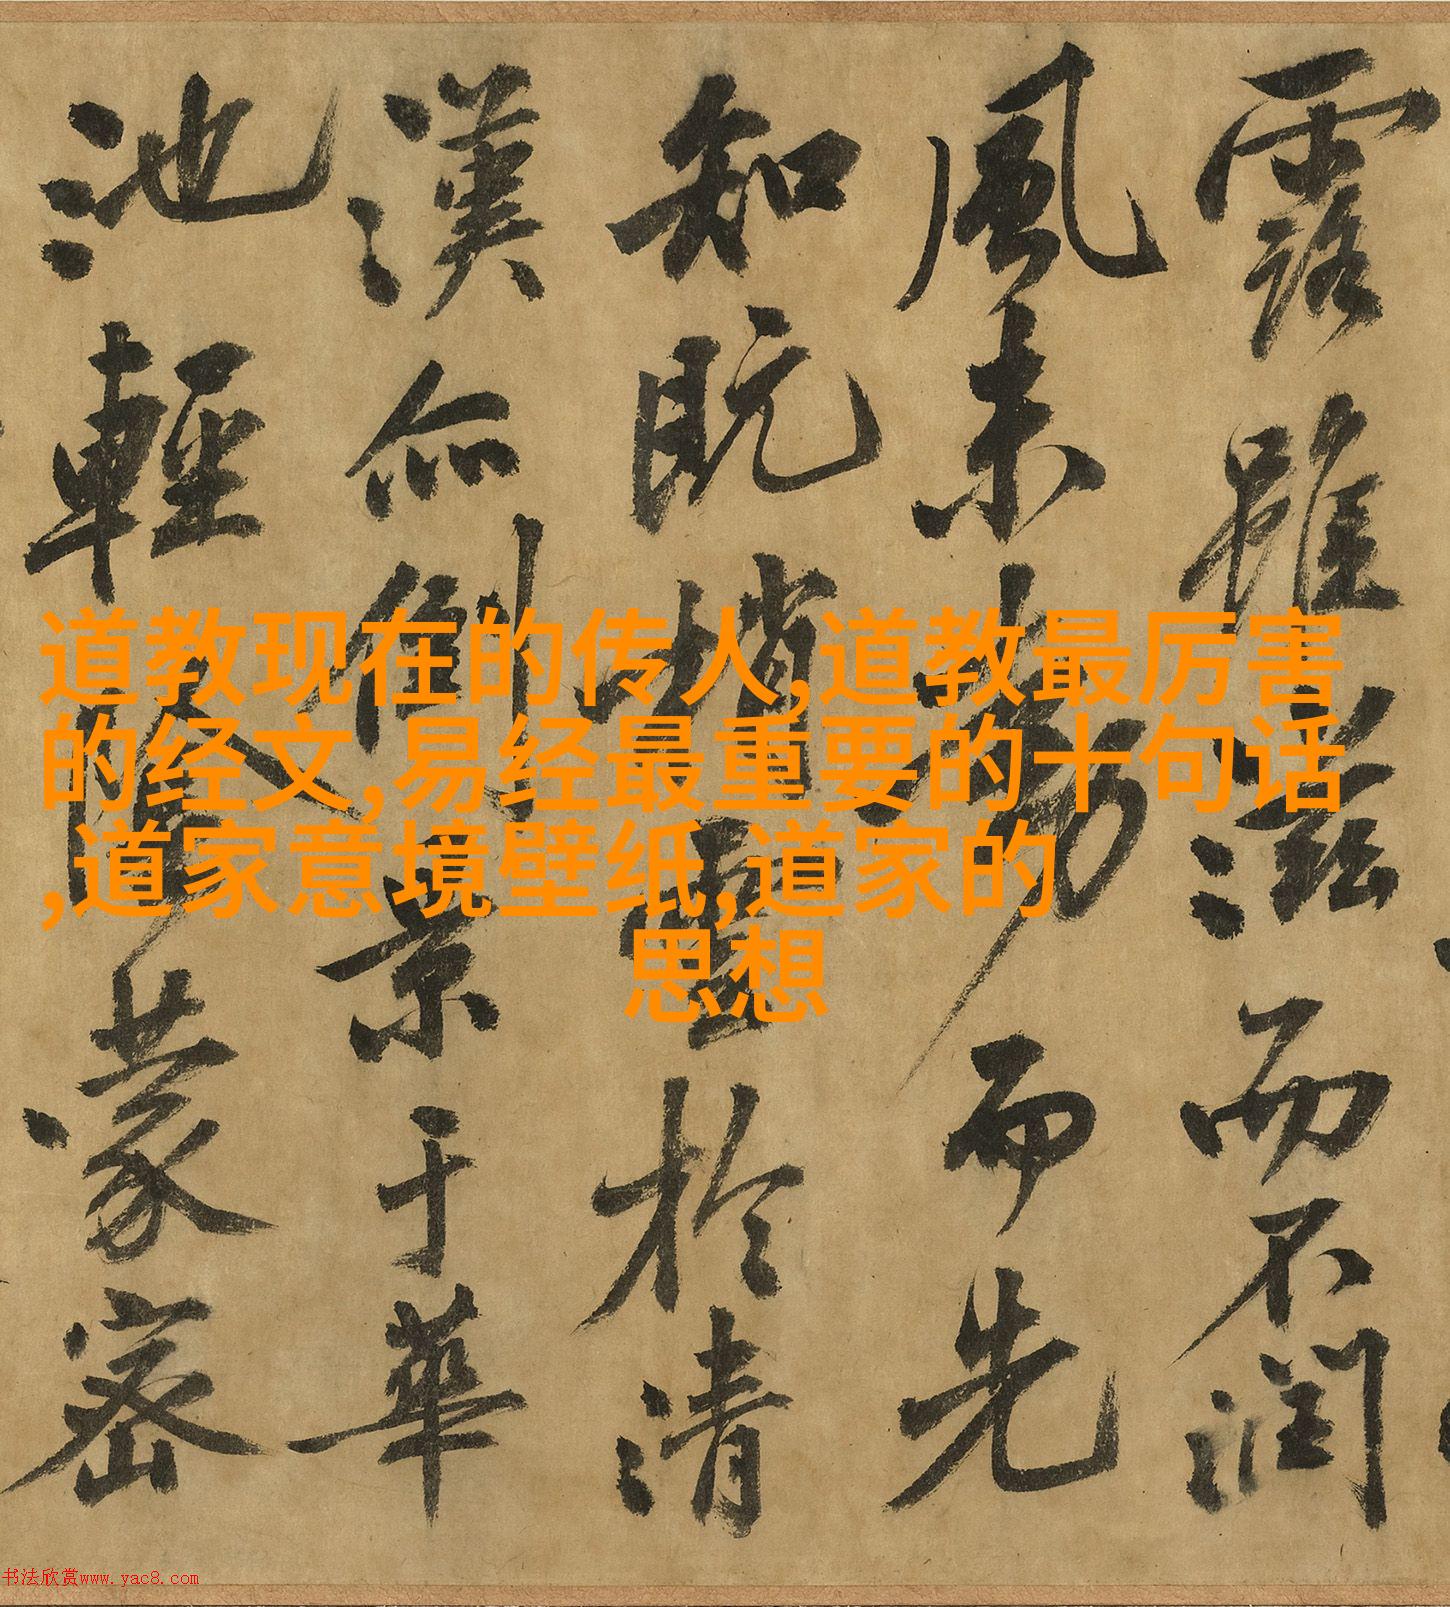 露雖滋而不潤
風未動而先
知既梢雲於清
漢亦倒景于華
池輕陰蒙密
道教现在的传人,道教最厉害
的经文,易经最重要的十句话
,道家意境壁纸,道家的
思想
书法欣赏www.yac8.com